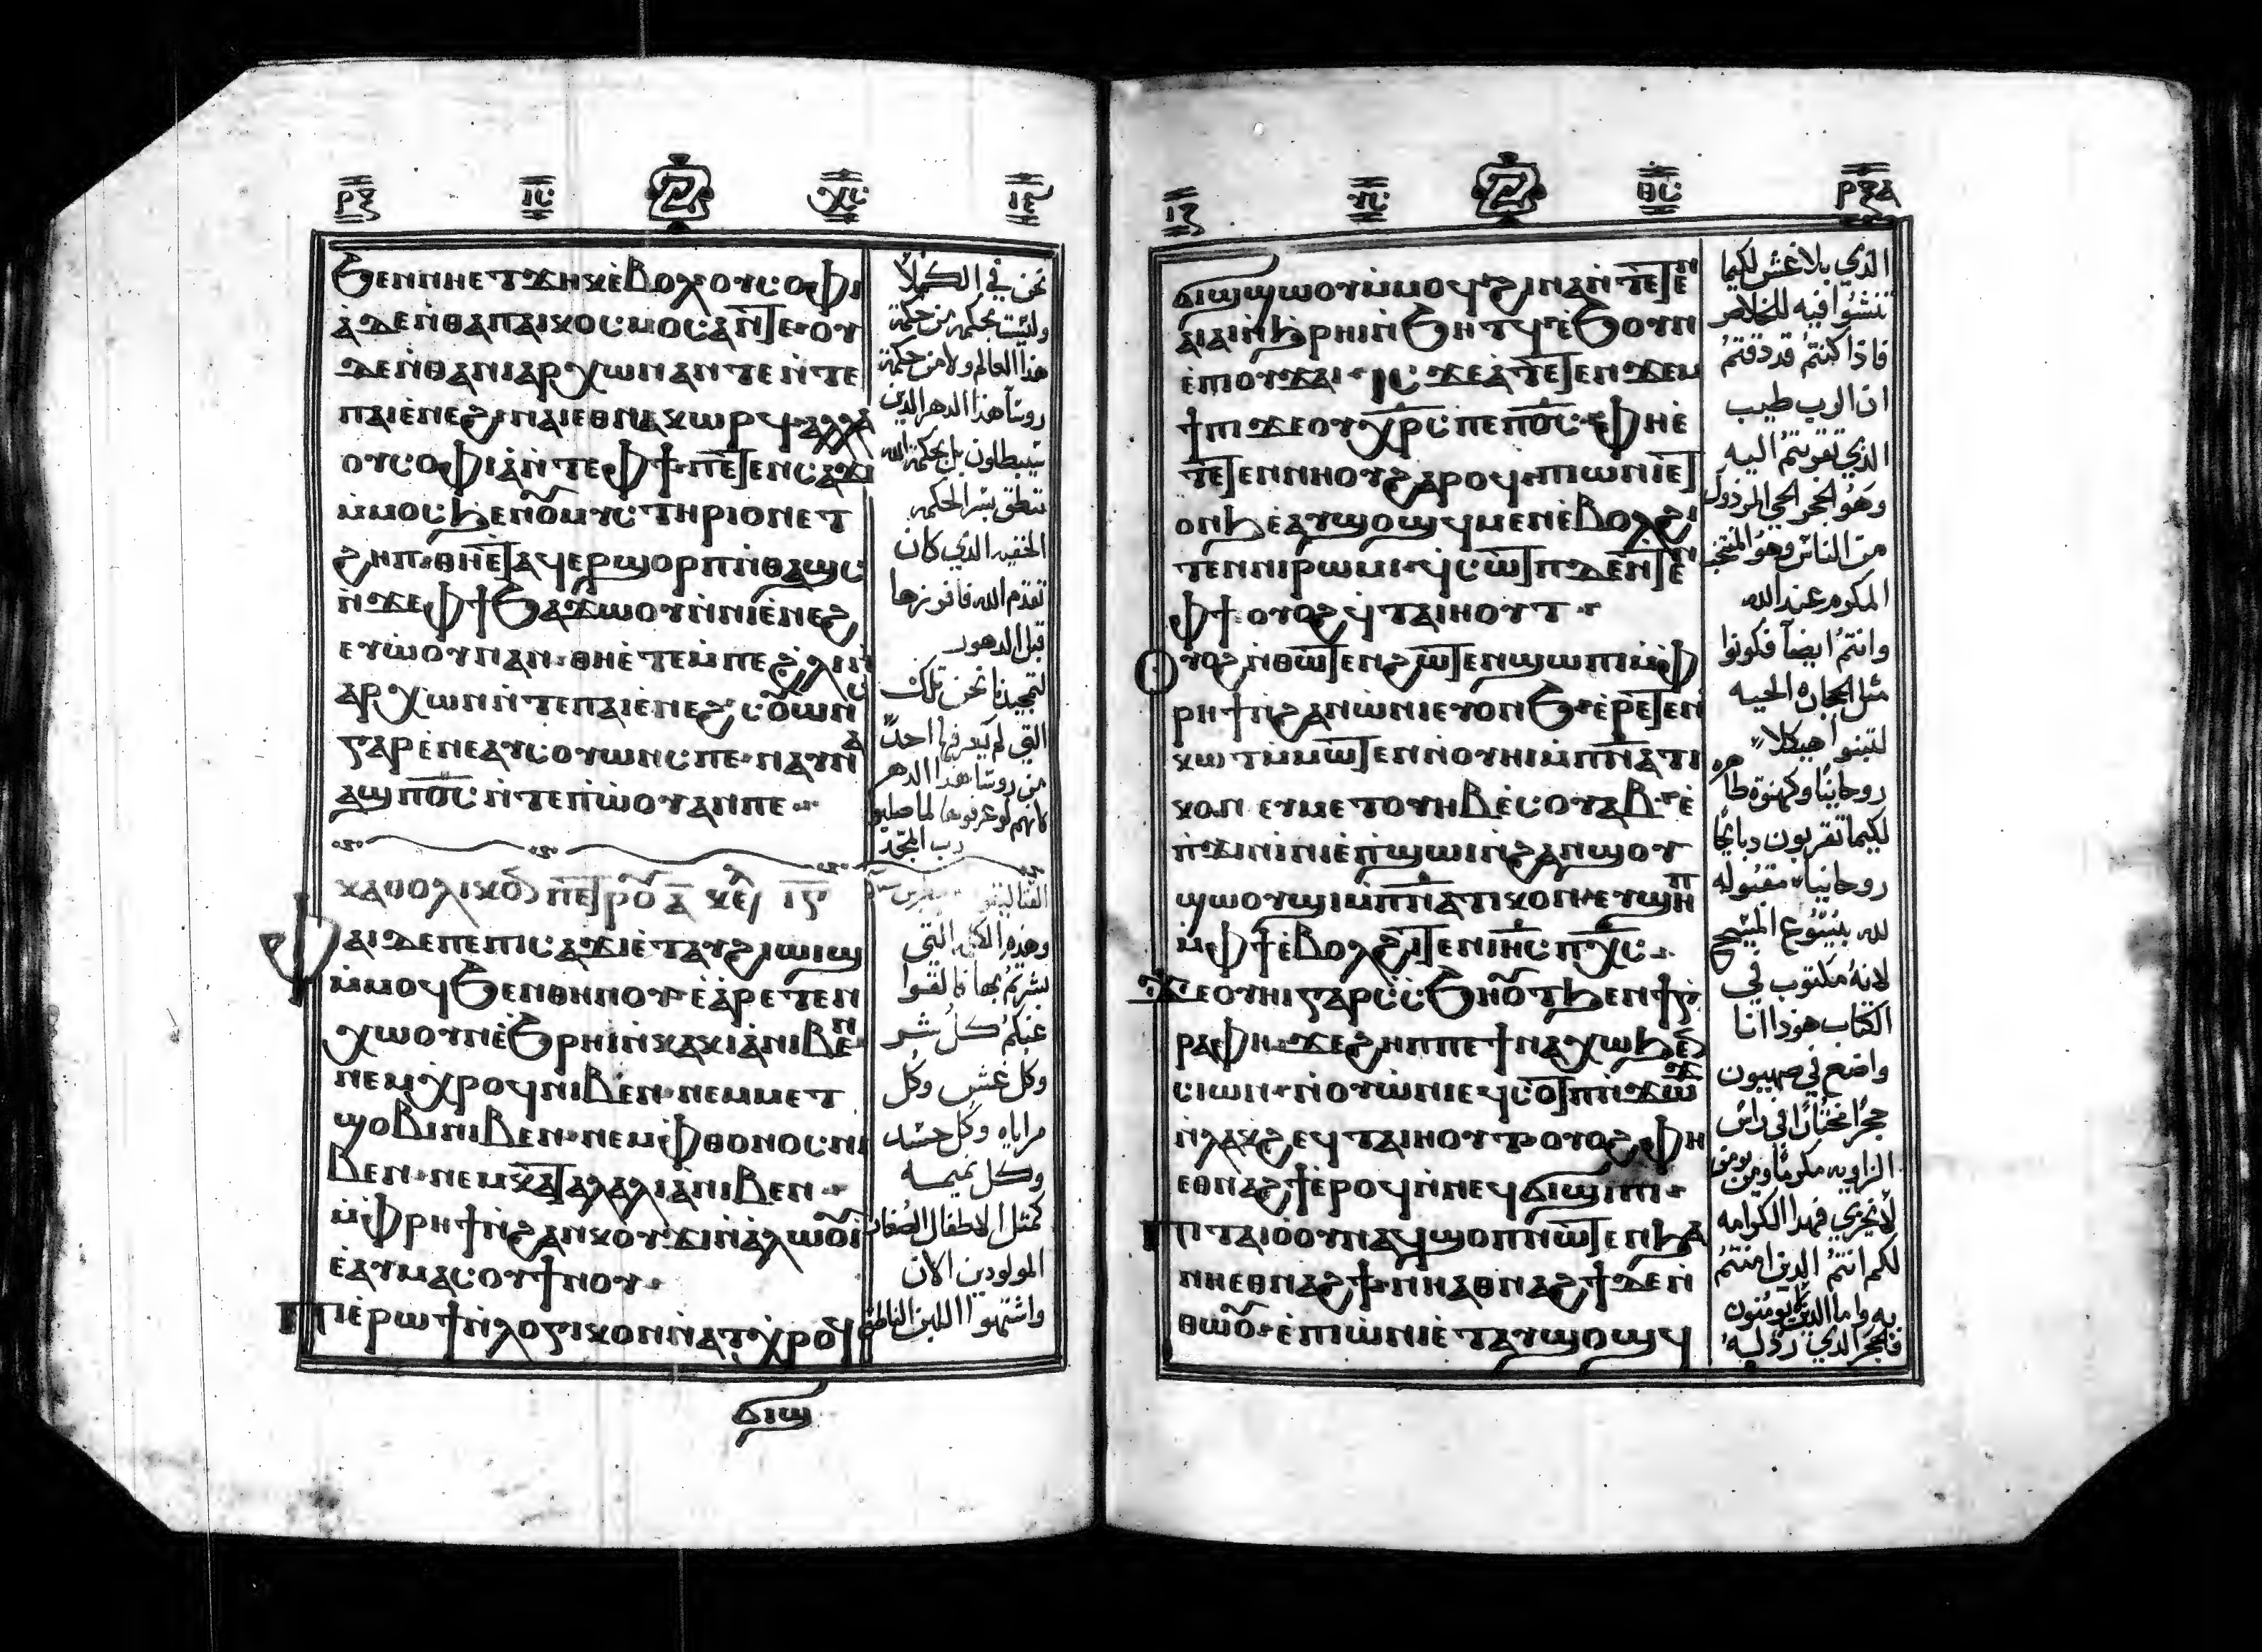 ⲣⲝ ⲓⲥ ⲭⲥ ⲓⲉ
ϧⲉⲛⲛⲏⲉⲧϫⲏⲕⲉ̀ⲃⲟⲗ ⲟⲩⲥⲟⲫⲓ
ⲁ̀ ⲇⲉ ⲛ̀ⲑⲁⲡⲁⲓⲕⲟⲥⲙⲟⲥ ⲁⲛ ⲧⲉ ⲟⲩ
ⲇⲉ ⲛ̀ⲑⲁⲛⲓⲁⲣⲭⲱⲛ ⲁⲛ ⲧⲉ ⲛ̀ⲧⲉ
ⲡⲁⲓⲉ̀ⲛⲉϩ ⲛⲁⲓ ⲉⲑⲛⲁⲕⲱⲣϥ ⲁⲗⲗⲁ
ⲟⲩⲥⲟⲫⲓⲁ̀ ⲛ̀ⲧⲉ ⲫϯ ⲡⲉⲧⲉⲛⲥⲁϫⲓ
ⲙ̀ⲙⲟⲥ ϧⲉⲛ ⲟⲩⲙⲩⲥⲧⲏⲣⲓⲟⲛ ⲉⲧ
ϩⲏⲡ ⲑⲏⲉ̀ⲧⲁϥⲉⲣϣⲟⲣⲡ ⲛ̀ⲑⲁϣⲥ
ⲛ̀ϫⲉ ⲫϯ ϧⲁϫⲱⲟⲩ ⲛ̀ⲛⲓⲉ̀ⲛⲉϩ
ⲉⲩⲱ̀ⲟⲩ ⲛⲁⲛ ⲑⲏⲉ̀ⲧⲉ ⲙ̀ⲡⲉϩⲗⲓ ⲛ̀
ⲁⲣⲭⲱⲛ ⲛ̀ⲧⲉ ⲡⲁⲓⲉ̀ⲛⲉϩ ⲥⲟⲩⲱⲛⲥ
ⲅⲁⲣ ⲉ̀ⲛⲉⲁⲩⲥⲟⲩⲱⲛⲥ ⲡⲉ ⲛⲁⲩⲛⲁ
ⲁϣ ⲡⲟ̅ⲥ̅ ⲛ̀ⲧⲉ ⲡⲱ̀ⲟⲩ ⲁⲛ ⲡⲉ
ⲕⲁⲑⲟⲗⲓⲕⲟⲛ ⲡⲉⲧⲣⲟⲩ ⲁ̅ ⲕⲉ ⲓⲅ
ⲫⲁⲓ ⲇⲉ ⲡⲉ ⲡⲓⲥⲁϫⲓ ⲉ̀ⲧⲁⲩϩⲓⲱⲓϣ
ⲙ̀ⲙⲟϥ ϧⲉⲛⲑⲏⲛⲟⲩ ⲉⲁ̀ⲣⲉⲧⲉⲛ
ⲭⲱ ⲟⲩⲛ ⲉ̀ϧⲣⲏⲓ ⲛ̀ⲕⲁⲕⲓⲁ̀ ⲛⲓⲃⲉⲛ
ⲛⲉⲙ ⲭⲣⲟϥ ⲛⲓⲃⲉⲛ ⲛⲉⲙ ⲙⲉⲧ
ϣⲟⲃⲓ ⲛⲓⲃⲉⲛ ⲛⲉⲙ ⲫⲑⲟⲛⲟⲥ ⲛⲓ
ⲃⲉⲛ ⲛⲉⲙ ⲕⲁⲧⲁⲗⲁⲗⲓⲁ̀ ⲛⲓⲃⲉⲛ
ⲙ̀ⲫⲣⲏϯ ⲛ̀ϩⲁⲛⲕⲟⲩϫⲓ ⲛ̀ⲁ̀ⲗⲱⲟⲩⲓ̀
ⲉ̀ⲁⲩⲙⲁⲥⲟⲩ ϯⲛⲟⲩ
ⲡⲓⲉ̀ⲣⲱϯ ⲛ̀ⲗⲟⲅⲓⲕⲟⲛ ⲛ̀ⲁⲧⲭⲣⲟϥ
ϭⲓϣ
نحن في الكملا
وليست بحكمه من حكمة
هذا العالم ولا من حكمة
روسآ هذا الدهر الذين
يبطلون بل بحكمة الله
ننطق بسر الحكمه
الخفيه الذي كان
تقدم الله فافرزها
قبل الدهور
لتمجيدنا نحن تلك
التي لم يعرفها احدًا
من روسا هذا الدهر
لانهم لو عرفوها لما صلبوا
رب المجد
وهذه الكلمه التي
بشرتم بها فالقوا
عنكم كل شر
وكل غش وكل
مراياه وكل حسد
وكل نميمه
كمثل الاطفال الصغار
المولودين الان
واشتهوا اللبن الناطق
ⲓⲋ ⲩⲥ ⲑⲥ ⲣⲝⲁ
ϭⲓϣϣⲱⲟⲩ ⲙ̀ⲙⲟϥ ϩⲓⲛⲁ ⲛ̀ⲧⲉⲧⲉⲛ
ⲁⲓⲁⲓ ⲛ̀ϧⲣⲏⲓ ⲛ̀ϧⲏⲧϥ ⲉ̀ϧⲟⲩⲛ
ⲉ̀ⲡⲓⲟⲩϫⲁⲓ ⲓⲥϫⲉ ⲁ̀ⲧⲉⲧⲉⲛϫⲉⲙ
ϯⲡⲓ ϫⲉ ⲟⲩⲭⲣⲥ ⲡⲉ ⲡⲟ̅ⲥ̅ ⲫⲏⲉ̀
ⲧⲉⲧⲉⲛⲛⲏⲟⲩ ϩⲁⲣⲟϥ ⲡⲓⲱⲛⲓ ⲉⲧ
ⲟⲛϧ ⲉ̀ⲁⲩϣⲟϣϥ ⲙⲉⲛ ⲉ̀ⲃⲟⲗϩⲓ
ⲧⲉⲛ ⲛⲓⲣⲱⲙⲓ ϥ̀ⲥⲱⲧⲡ ⲇⲉ ⲛ̀ⲧⲉⲛ
ⲫϯ ⲟⲩⲟϩ ϥ̀ⲧⲁⲓⲏⲟⲩⲧ
ⲟⲩⲟϩ ⲛ̀ⲑⲱⲧⲉⲛ ϩⲱⲧⲉⲛ ϣⲱⲡⲓ ⲙ̀ⲫ
ⲣⲏϯ ⲛ̀ϩⲁⲛⲱ̀ⲛⲓ ⲉⲩⲟⲛϧ ⲉ̀ⲣⲉⲧⲉⲛ
ⲕⲱⲧ ⲙ̀ⲙⲱⲧⲉⲛ ⲛ̀ⲟⲩⲏⲓ ⲙ̀ⲡⲛⲁⲧⲓ
ⲕⲟⲛ ⲉⲩⲙⲉⲧⲟⲩⲏⲃ ⲉ̀ⲥⲟⲩⲁⲃ ⲉ̀
ⲡ̀ϫⲓⲛⲓ̀ⲛⲓ ⲉ̀ⲡ̀ϣⲱⲓ ⲛ̀ϩⲁⲛϣⲟⲩ
ϣⲱⲟⲩϣⲓ ⲙ̀ⲡⲛⲁⲧⲓⲕⲟⲛ ⲉⲩϣⲏⲡ
ⲙ̀ⲫϯ ⲉ̀ⲃⲟⲗϩⲓⲧⲉⲛ ⲓⲏⲥ ⲡⲭⲥ
ϫⲉ ⲟⲩⲏⲓ ⲅⲁⲣ ⲥⲥϧⲏⲟⲩⲧ ϧⲉⲛ ϯⲅ
ⲣⲁⲫⲏ ϫⲉ ϩⲏⲡⲡⲉ ϯⲛⲁⲭⲱ ϧⲉⲛ
ⲥⲓⲱⲛ ⲛ̀ⲟⲩⲱ̀ⲛⲓ ⲉϥⲥⲟⲧⲡ ⲛ̀ϫⲱϫ
ⲛ̀ⲗⲁⲕϩ ⲉϥⲧⲁⲓⲏⲟⲩⲧ ⲟⲩⲟϩ ⲫⲏ
ⲉⲑⲛⲁϩϯ ⲉ̀ⲣⲟϥ ⲛ̀ⲛⲉϥϭⲓϣⲓⲡⲓ
ⲡⲓⲧⲁⲓⲟ̀ ⲟⲩⲛ ⲁϥϣⲟⲡ ⲛⲱⲧⲉⲛ ϧⲁ
ⲛⲏⲉⲑⲛⲁϩϯ ⲛⲏ ⲁⲑⲛⲁϩϯ ⲇⲉ ⲛ̀
ⲑⲱⲟⲩ ⲉ̀ ⲡⲓⲱ̀ⲛⲓ ⲉ̀ⲧⲁⲩϣⲟϣϥ
الذي بلا غش لكيما
تنشوا فيه للخلاص
فاذا كنتم قد دقتم
ان الرب طيب
الذي تقربتم اليه
وهو الحجر الحي المردول
من الناس وهو المنتخب
المكرم عند الله
وانتم ايضآ فكونوا
مثل الحجاره الحيه
لتبنوا هيكلا
روحانيًا وكهنوة طاهره
لكيما تقربون دبايحًا
روحانيا مقبوله
لله بيسوع المسيح
لانه مكتوب في
الكتاب هوذا انا
واضع في صهيون
حجرًا مختارًا في راس
الزاويه مكرمًا ومن يومن
لا يخزي فهدا الكرامه
لكم انتم الدين امنتم
به واما الدين لا يومنون
فالحجر الدي ردوليه